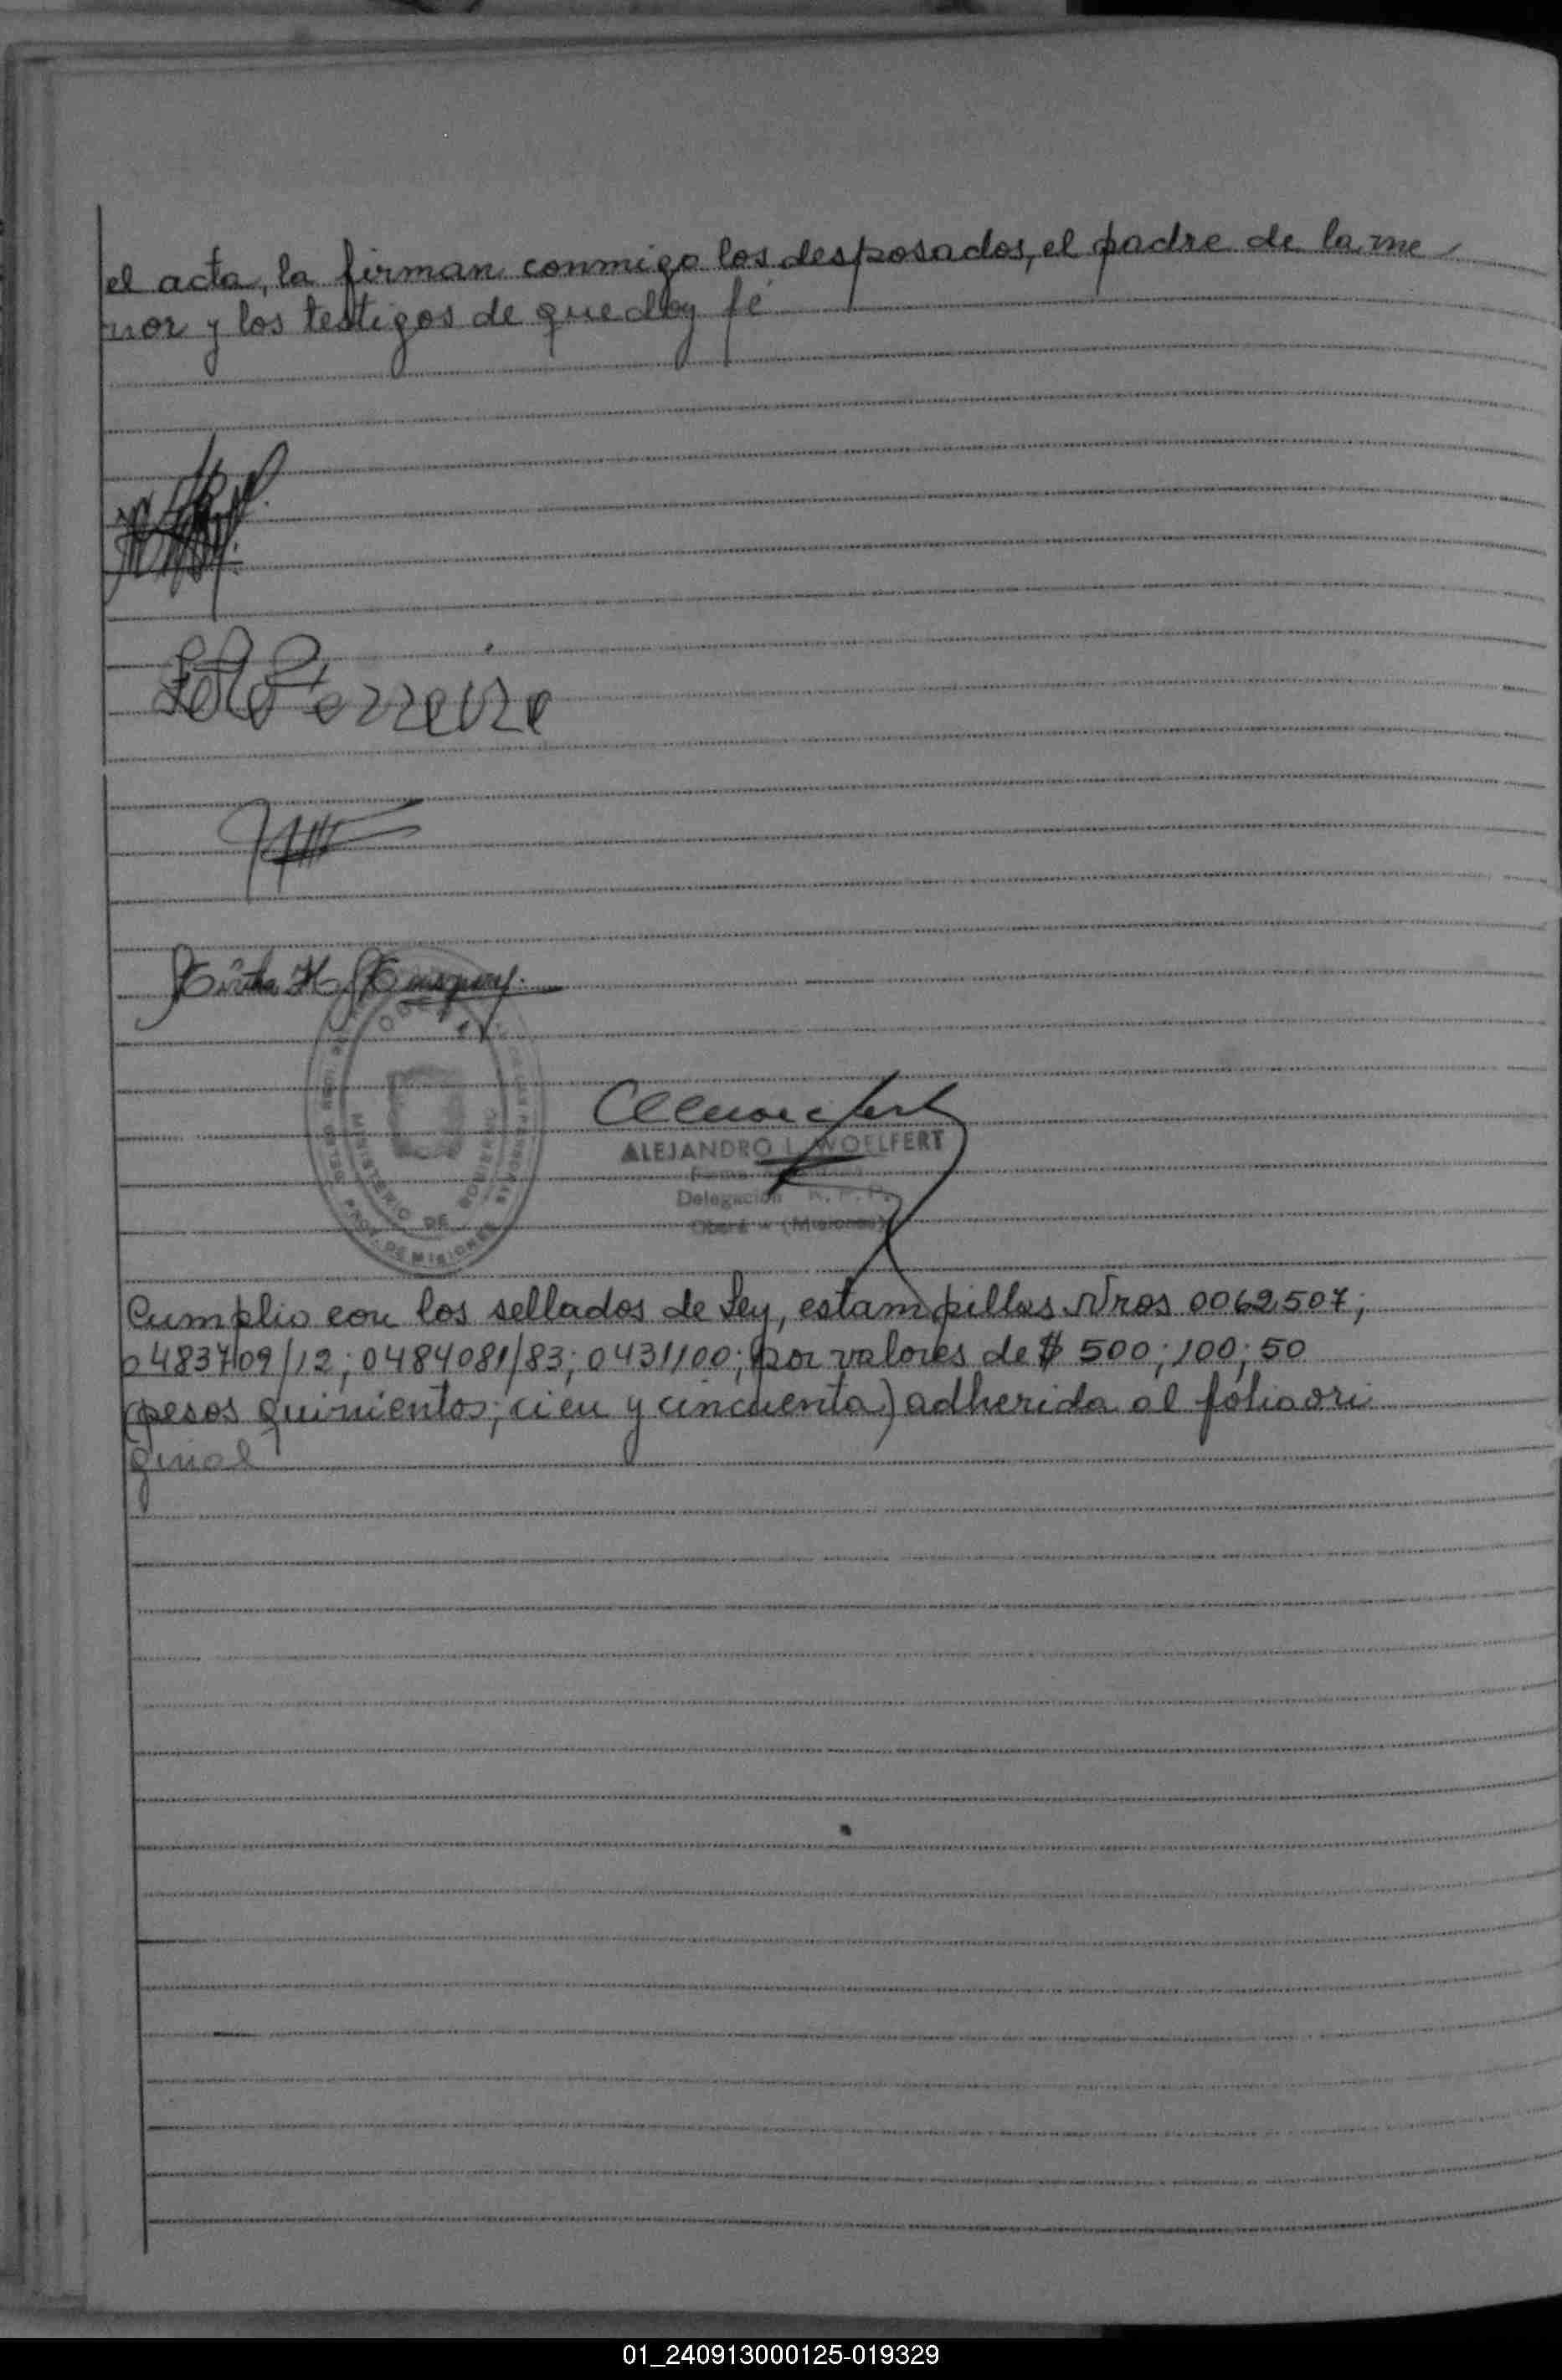 el acta, la firman conmigo los desposados, el padre de la me
nor y los testigos de que doy fé
Ferreira
Mirtha H.
MINISTERIO DE GOBIERNO
PROV. DE MISIONES
ALEJANDRO L. WOELFERT
Delegación R. P. P.
Oberá - (Misiones)
Cumplio con los sellados de Ley, estampillas Nros 0062507;
0483709/12; 0484081/83; 0431100; por valores de $ 500; 100; 50
(pesos quinientos; cien y cincuenta) adherida al fólio ori
ginal
01_240913000125-019329